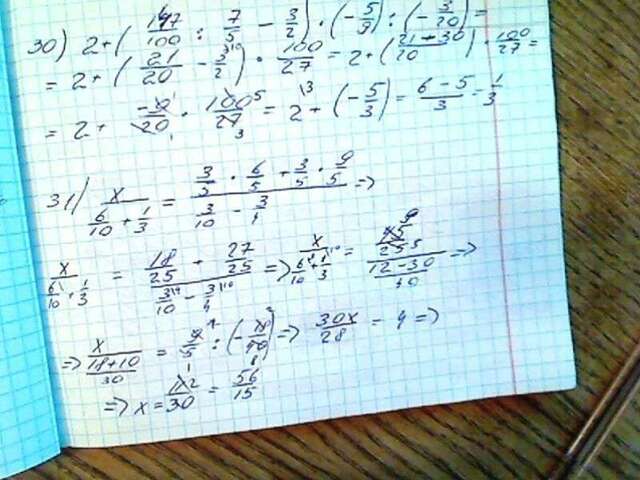 30) 2+( 147/100 : 7/5 − 3/2 ) · (− 5/9) : (− 3/20) =
= 2+( 21/20 − 3/2 ) · 100/27 = 2+( 21−30/20 ) · 100/27 =
= 2+ −9/20 · 100/27 = 2+(− 5/3) = 6−5/3 = 1/3
31) x/(6/10 + 1/3) = (3/5 · 6/5 + 3/5 · 9/5)/(3/10 − 3/4) =>
x/(6/10 + 1/3) = (18/25 + 27/25)/(3/10 − 3/4) => x/(6/10 + 1/3) = (45/25)/(12−30/40) =>
=> x/(18+10/30) = 9/5 : (− 18/40) => 30x/28 = 4 =>
=> x = 112/30 = 56/15